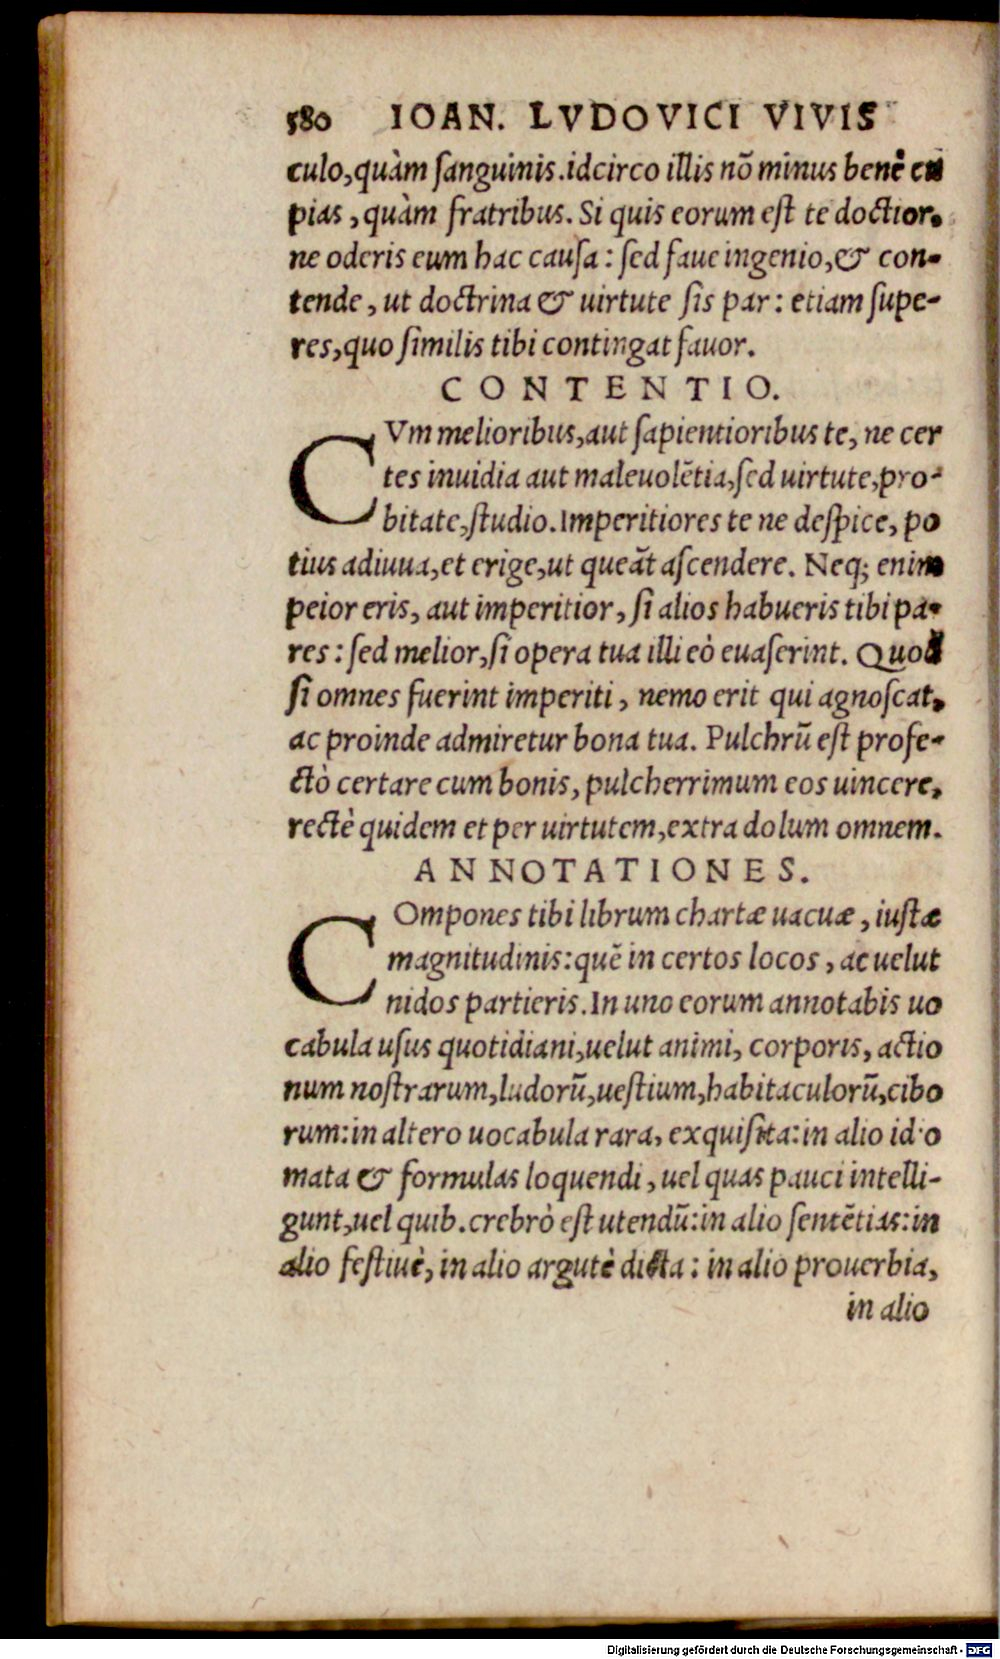 580 IOAN. LVDOVICI VIVIS
culo,quàm ſanguinis.idcirco illis nõ minus benè cu
pias, quàm fratribus. Si quis eorum eſt te doctior,
ne oderis eum hac cauſa: ſed faue ingenio,& con-
tende, ut doctrina & uirtute ſis par: etiam ſupe-
res,quo ſimilis tibi contingat fauor.
CONTENTIO.
CVm melioribus,aut ſapientioribus te, ne cer
tes inuidia aut maleuolẽtia,ſed uirtute,pro-
bitate,ſtudio.Imperitiores te ne deſpice, po
tius adiuua,et erige,ut queãt aſcendere. Neq; enim
peior eris, aut imperitior, ſi alios habueris tibi pa-
res: ſed melior,ſi opera tua illi eò euaſerint. Quod
ſi omnes fuerint imperiti, nemo erit qui agnoſcat,
ac proinde admiretur bona tua. Pulchrũ eſt profe-
ctò certare cum bonis, pulcherrimum eos uincere,
rectè quidem et per uirtutem,extra dolum omnem.
ANNOTATIONES.
COmpones tibi librum chartæ uacuæ, iuſtæ
magnitudinis:quẽ in certos locos, ac uelut
nidos partieris.In uno eorum annotabis uo
cabula uſus quotidiani,uelut animi, corporis, actio
num noſtrarum,ludorũ,ueſtium,habitaculorũ,cibo
rum:in altero uocabula rara, exquiſita:in alio idio
mata & formulas loquendi, uel quas pauci intelli-
gunt,uel quib.crebrò eſt utendũ:in alio ſentẽtias:in
alio feſtiuè, in alio argutè dicta: in alio prouerbia,
in alio
Digitalisierung gefördert durch die Deutsche Forschungsgemeinschaft - DFG